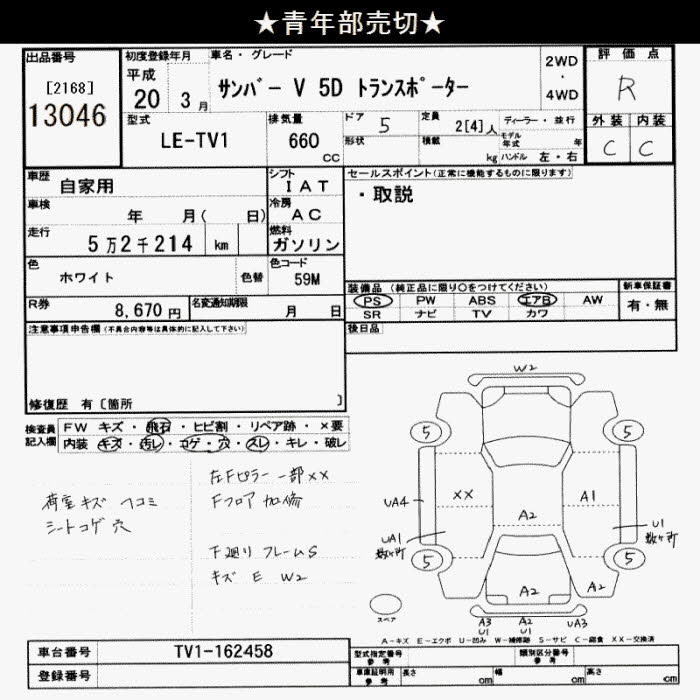 ★青年部売切★
出品番号
[2168]
13046
初度登録年月
平成
20 3月
車名・グレード
サンバー V 5D トランスポーター
2WD
・
4WD
評価点
R
外装 内装
C C
型式
LE-TV1
排気量
660
cc
ドア
5
形状
定員
2[4]人
積載
kg
ディーラー・並行
モデル
年式 年
ハンドル 左・右
車歴
自家用
車検
年 月( 日)
走行
5万2千214 km
色
ホワイト
色替
シフト
IAT
冷房
AC
燃料
ガソリン
色コード
59M
R券
8,670円
名変通知期限
月 日
セールスポイント(正常に機能するものに限ります)
・取説
装備品 (純正品に限り○をつけてください)
PS PW ABS エアB AW
SR ナビ TV カワ
新車保証書
有・無
後日品
注意事項申告欄 (不具合内容等は具体的に記入して下さい)
修復歴 有〔箇所 〕
検査員
記入欄
FW キズ・飛石・ヒビ割・リペア跡・×要
内装 キズ・汚レ・コゲ・穴・スレ・キレ・破レ
荷室キズ ヘコミ
シートコゲ 穴
左Fピラー 一部××
Fフロア 加修
下廻り フレームS
キズ E W2
W2
5
5
××
A1
UA4
A2
UA1
数ヶ所
U1
数ヶ所
5
5
A2
A2
スペア
A3
U1
A2
U1
UA3
A-キズ E-エクボ U-凹み W-補修跡 S-サビ C-腐食 ××-交換済
車台番号
TV1-162458
登録番号
型式指定番号
参考
類別区分番号
参考
車庫証明用
参考
長さ cm
幅 cm
高さ cm